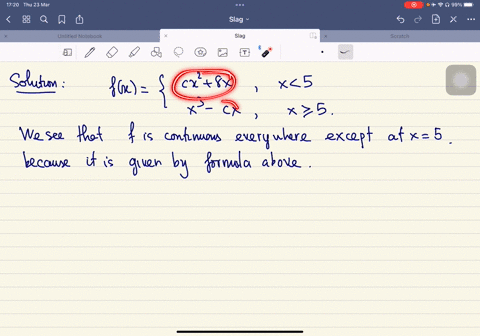 17:20 Thu 23 Mar
99%
Slag
Untitled Notebook
Slag
Scratch
Solution: f(x) = { cx² + 8x , x < 5
x³ - cx , x ≥ 5.
We see that f is continuous everywhere except at x = 5.
because it is given by formula above.